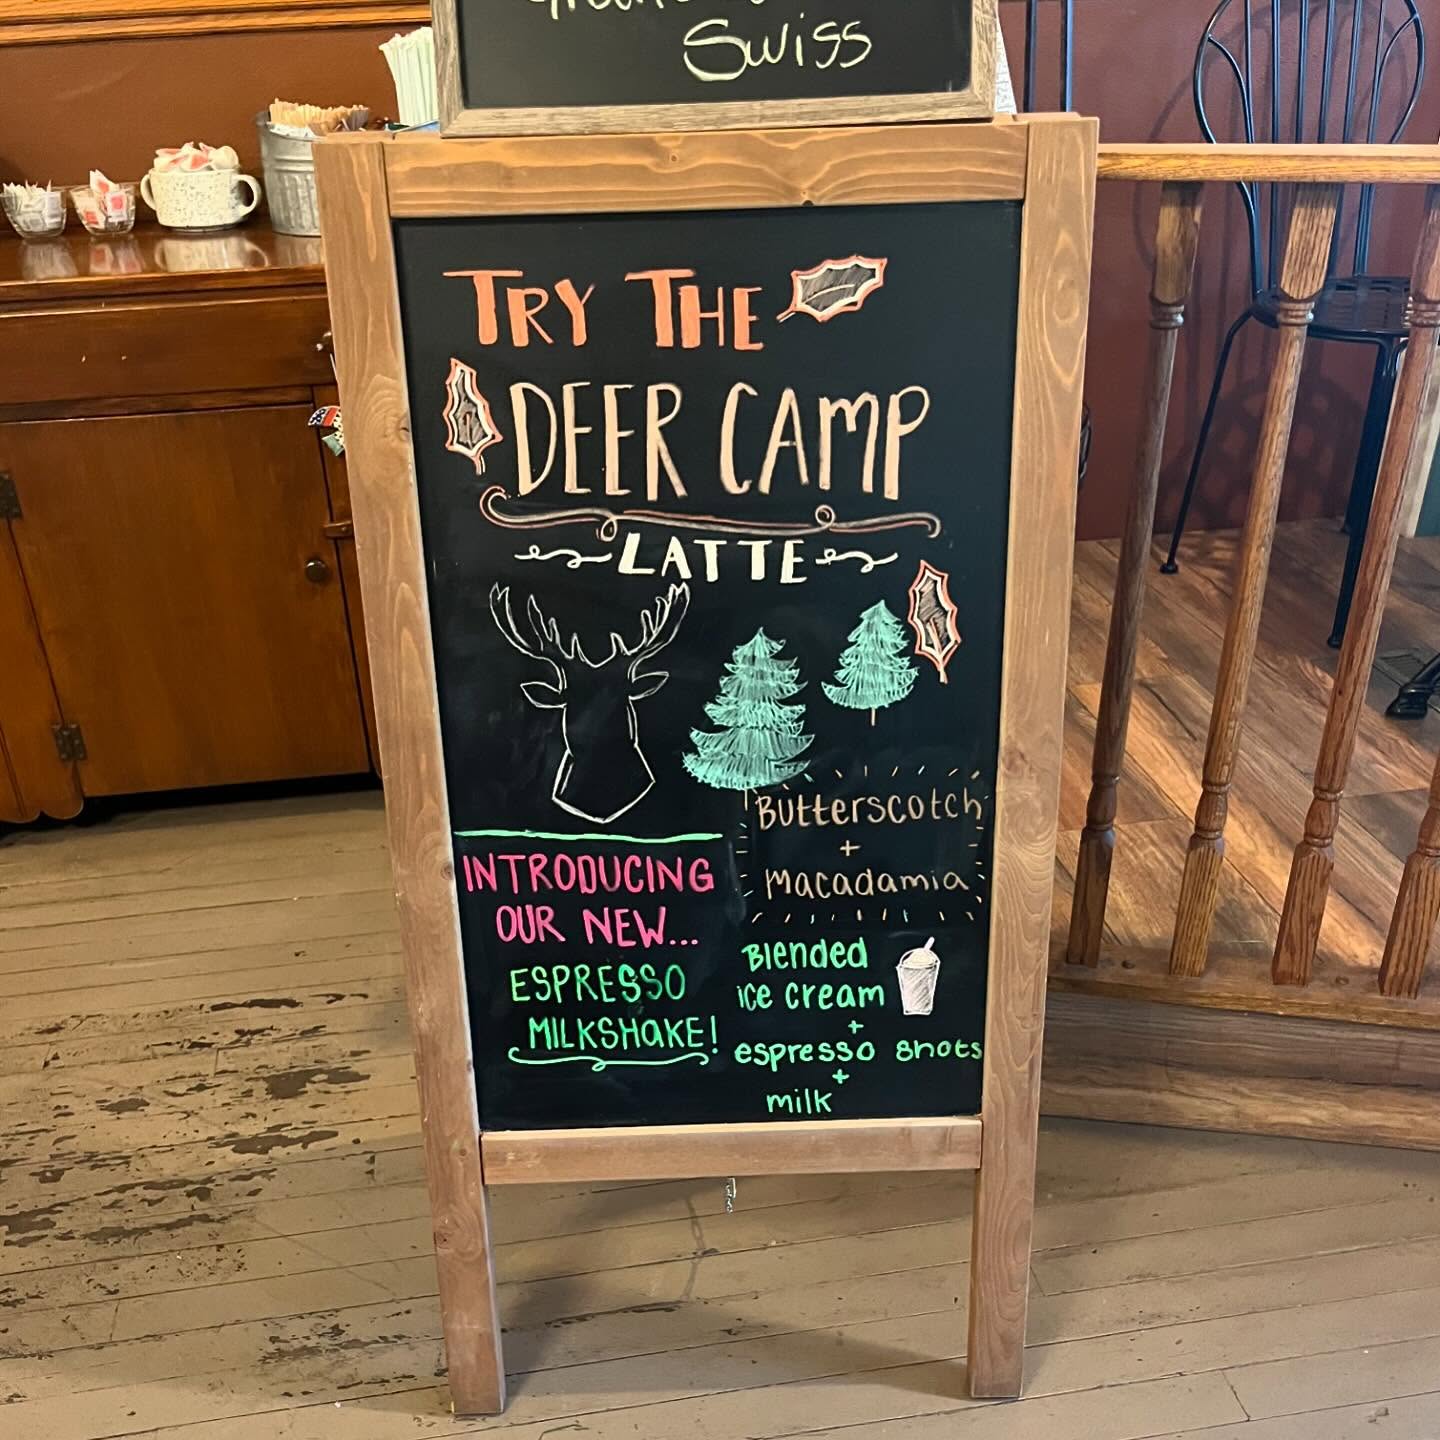 Swiss
TRY THE
DEER CAMP
LATTE
Butterscotch
+
Macadamia
INTRODUCING
OUR NEW...
ESPRESSO
MILKSHAKE!
Blended
ice cream
+
espresso shots
+
milk